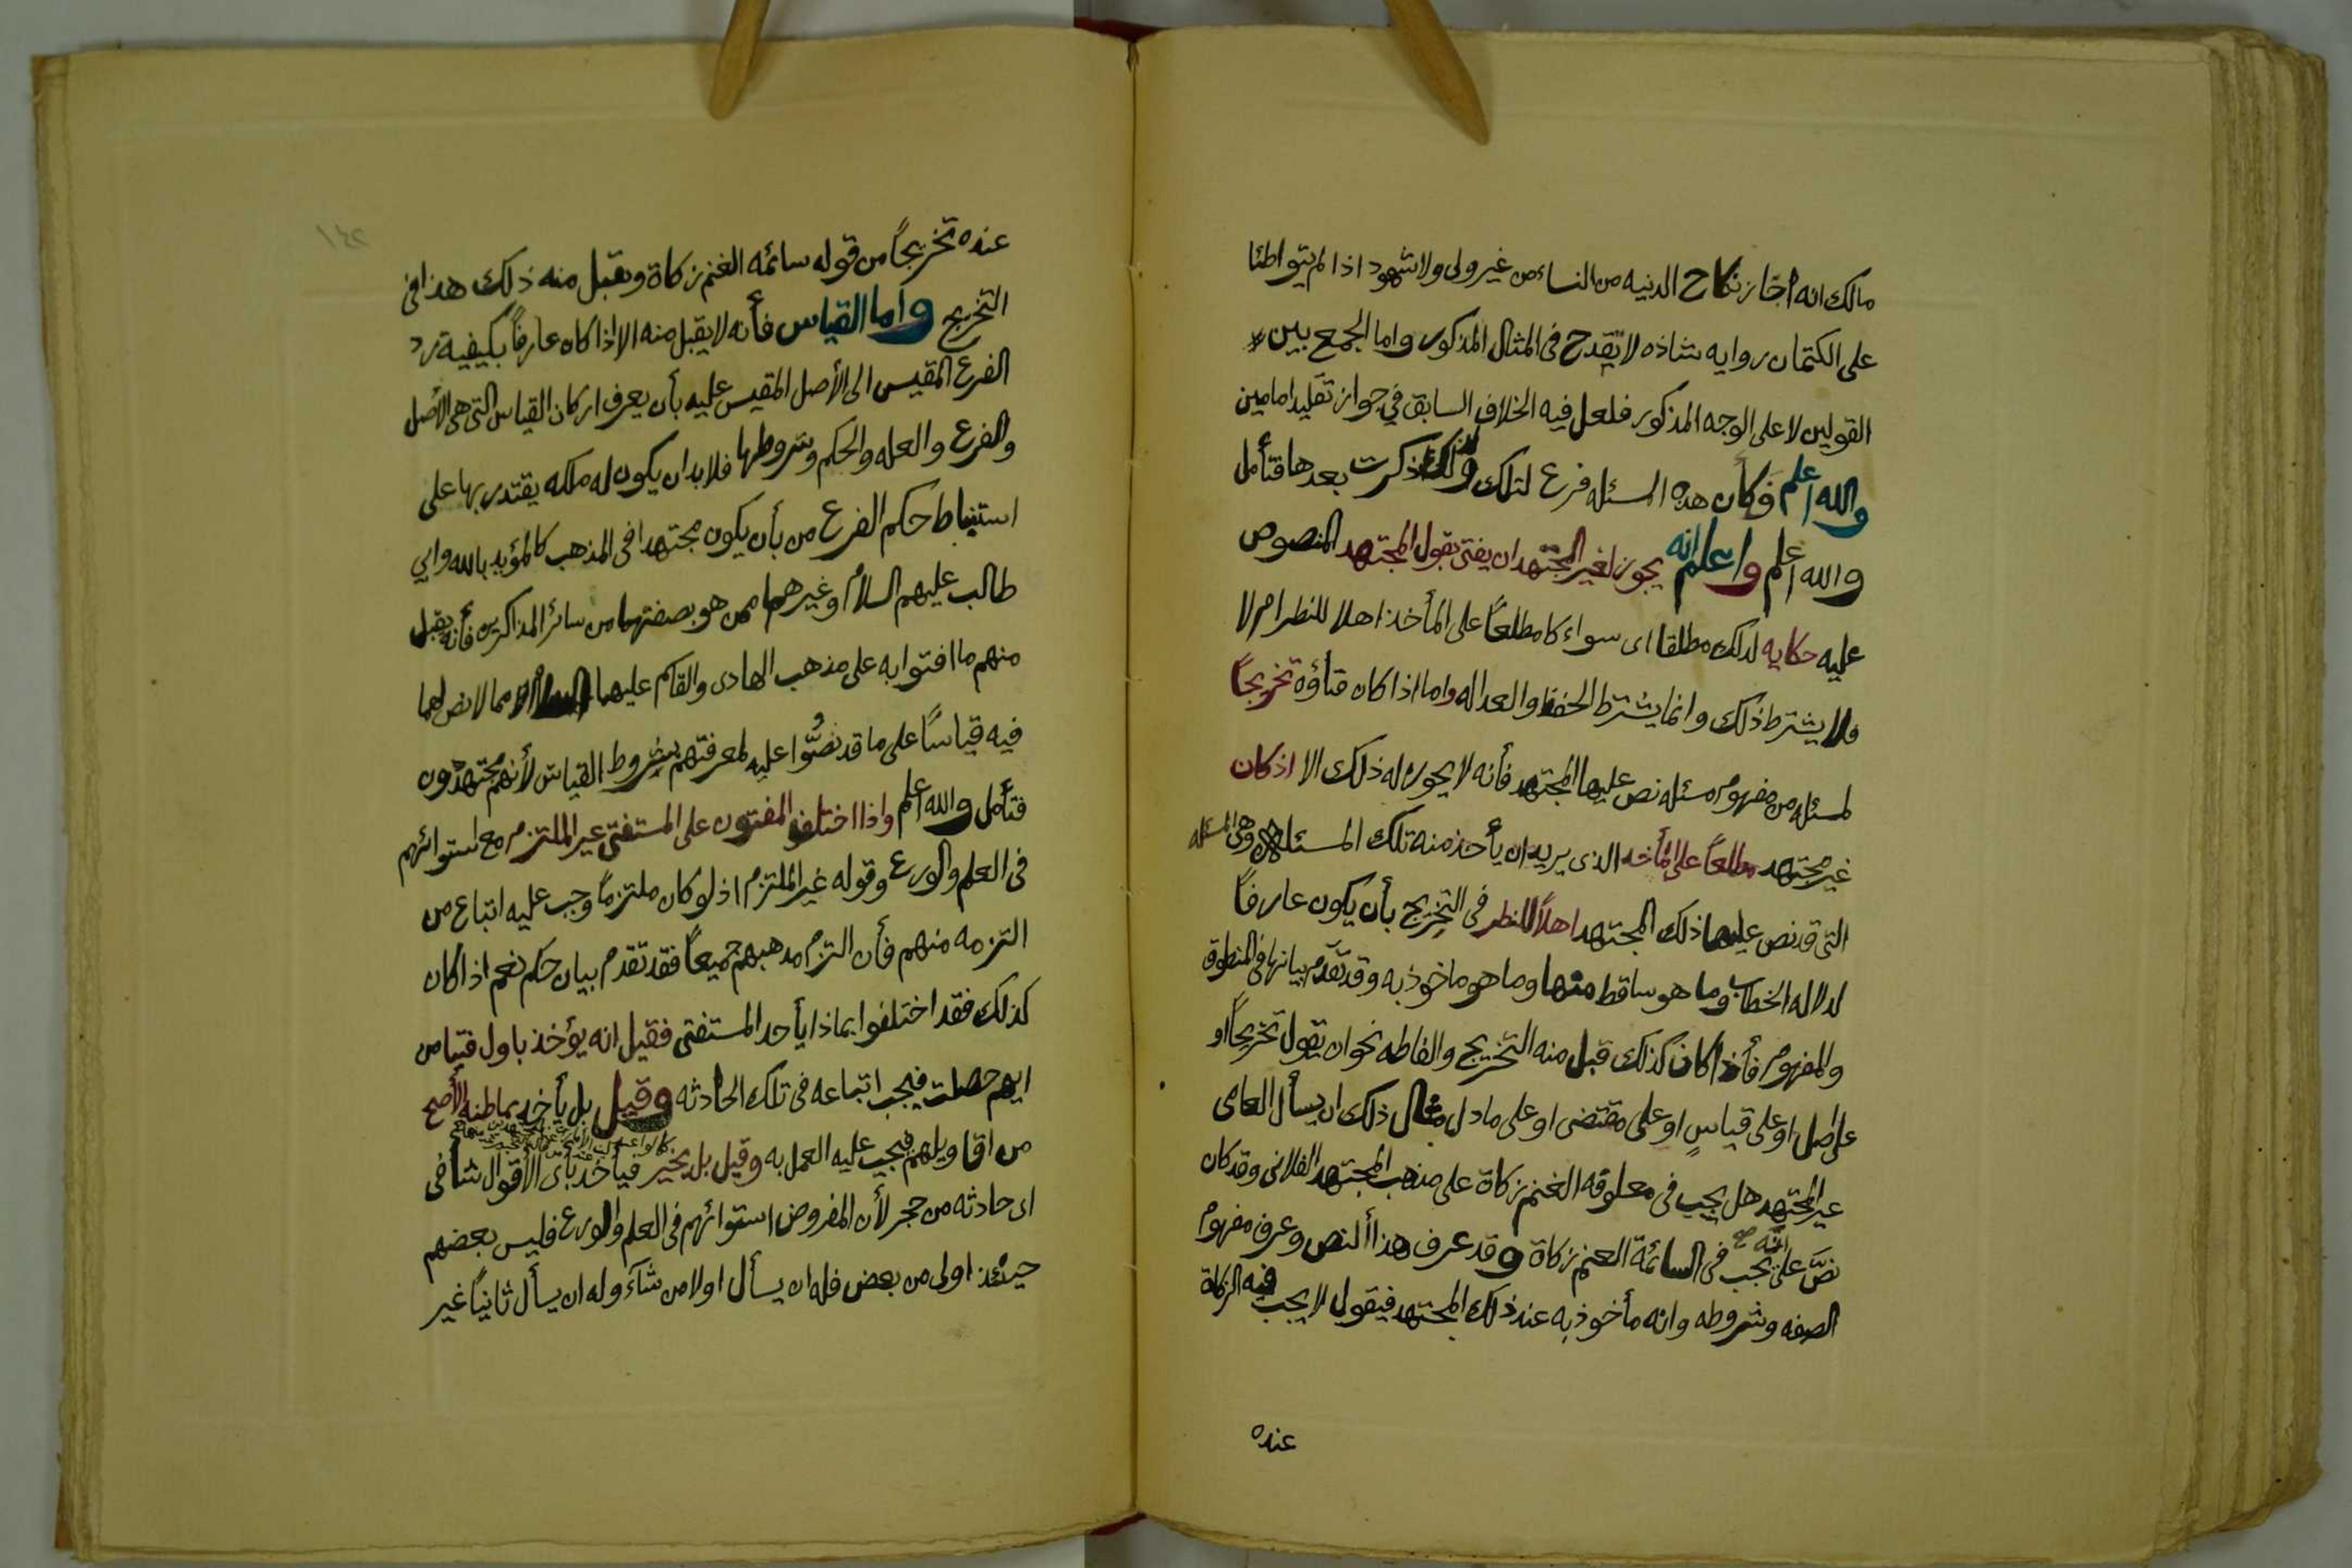 مالك انه اجاز نكاح الدنيه من النساء من غير ولى ولا شهود اذا لم يتواطئا
على الكتمان روايه شاذه لا تقدح فى المثال المذكور واما الجمع بين
القولين لا على الوجه المذكور فلعل فيه الخلاف السابق في جواز تقليد امامين
والله اعلم فكأن هذه المسئله فرع لتلك ولذلك ذكرت بعدها فتأمل
والله اعلم واعلم انه يجوز لغير المجتهد ان يفتى بقول المجتهد المنصوص
عليه حكايه لذلك مطلقا اى سواء كا مطلعاً على المأخذ اهلا للنظر ام لا
فلا يشترط ذلك وانما يشترط الحفظ والعداله واما اذا كان فتاؤه تخريجاً
لمسئله من مفهوم مسئله نص عليها المجتهد فأنه لا يجوز له ذلك الا اذ كان
غير مجتهد مطلعاً على المأخذ الذى يريد ان يأخذ منه تلك المسئله وهى المسئله
التى قد نص عليها ذلك المجتهد اهلاً للنظر فى التخريج بأن يكون عارفاً
لدلاله الخطاب وما هو ساقط منها وما هو ماخوذ به وقد تقدم بيانها فى المنطوق
والمفهوم فأذا كان كذلك قبل منه التخريج والفاظه نحو ان يقول تخريجاً او
على اصل او على قياسٍ او على مقتضى او على ما دل مثال ذلك ان يسأل العامى
غير المجتهد هل يجب فى معلوفه الغنم زكاة على مذهب المجتهد الفلانى وقد كان
نصَّ على انَّه صح يجب فى السائمة الغنم زكاة وقد عرف هذا النص وعرف مفهوم
الصفه وشروطه وانه مأخوذ به عند ذلك المجتهد فيقول لا يجب فيه الزكاة
عنده
١٤٢
عنده تخريجاً من قوله سائمه الغنم زكاة ويقبل منه ذلك هذا فى
التخريج واما القياس فأنه لا يقبل منه الا اذا كان عارفاً بكيفية رد
الفرع المقيس الى الأصل المقيس عليه بأن يعرف اركان القياس التى هى الأصل
والفرع والعله والحكم وشروطها فلا بد ان يكون له ملكه يقتدر بها على
استنباط حكم الفرع من بأن يكون مجتهدا فى المذهب كالمؤيد بالله وابي
طالب عليهم السلام وغيرهما ممن هو بصفتهما من سائر المذاكرين فأنه يقبل
منهم ما افتوا به على مذهب الهادى والقاسم عليهما السلام مما لا نص لهما
فيه قياساً على ما قد نصُّوا عليه لمعرفتهم بشروط القياس لأنهم مجتهدون
فتأمل والله اعلم واذا اختلف المفتون على المستفتى غير الملتزم مع استوائهم
فى العلم والورع وقوله غير الملتزم اذ لو كان ملتزماً وجب عليه اتباع من
التزمه منهم فأن التزم مذهبهم جميعاً فقد تقدم بيان حكم نعم اذا كان
كذلك فقد اختلفوا بماذا يأخذ المستفتى فقيل انه يؤخذ باول فتيا من
ايهم حصلت فيجب اتباعه فى تلك الحادثه وقيل بل يأخذ بما ظنه الأصح
من اقاويلهم فيجب عليه العمل به وقيل بل يخير فيأخذ بأى الأقوال شا فى
اى حادثه من حجر لأن المفروض استوائهم فى العلم والورع فليس بعضهم
حينئذ اولى من بعض فله ان يسأل اولا من شآء وله ان يسأل ثانياً غير